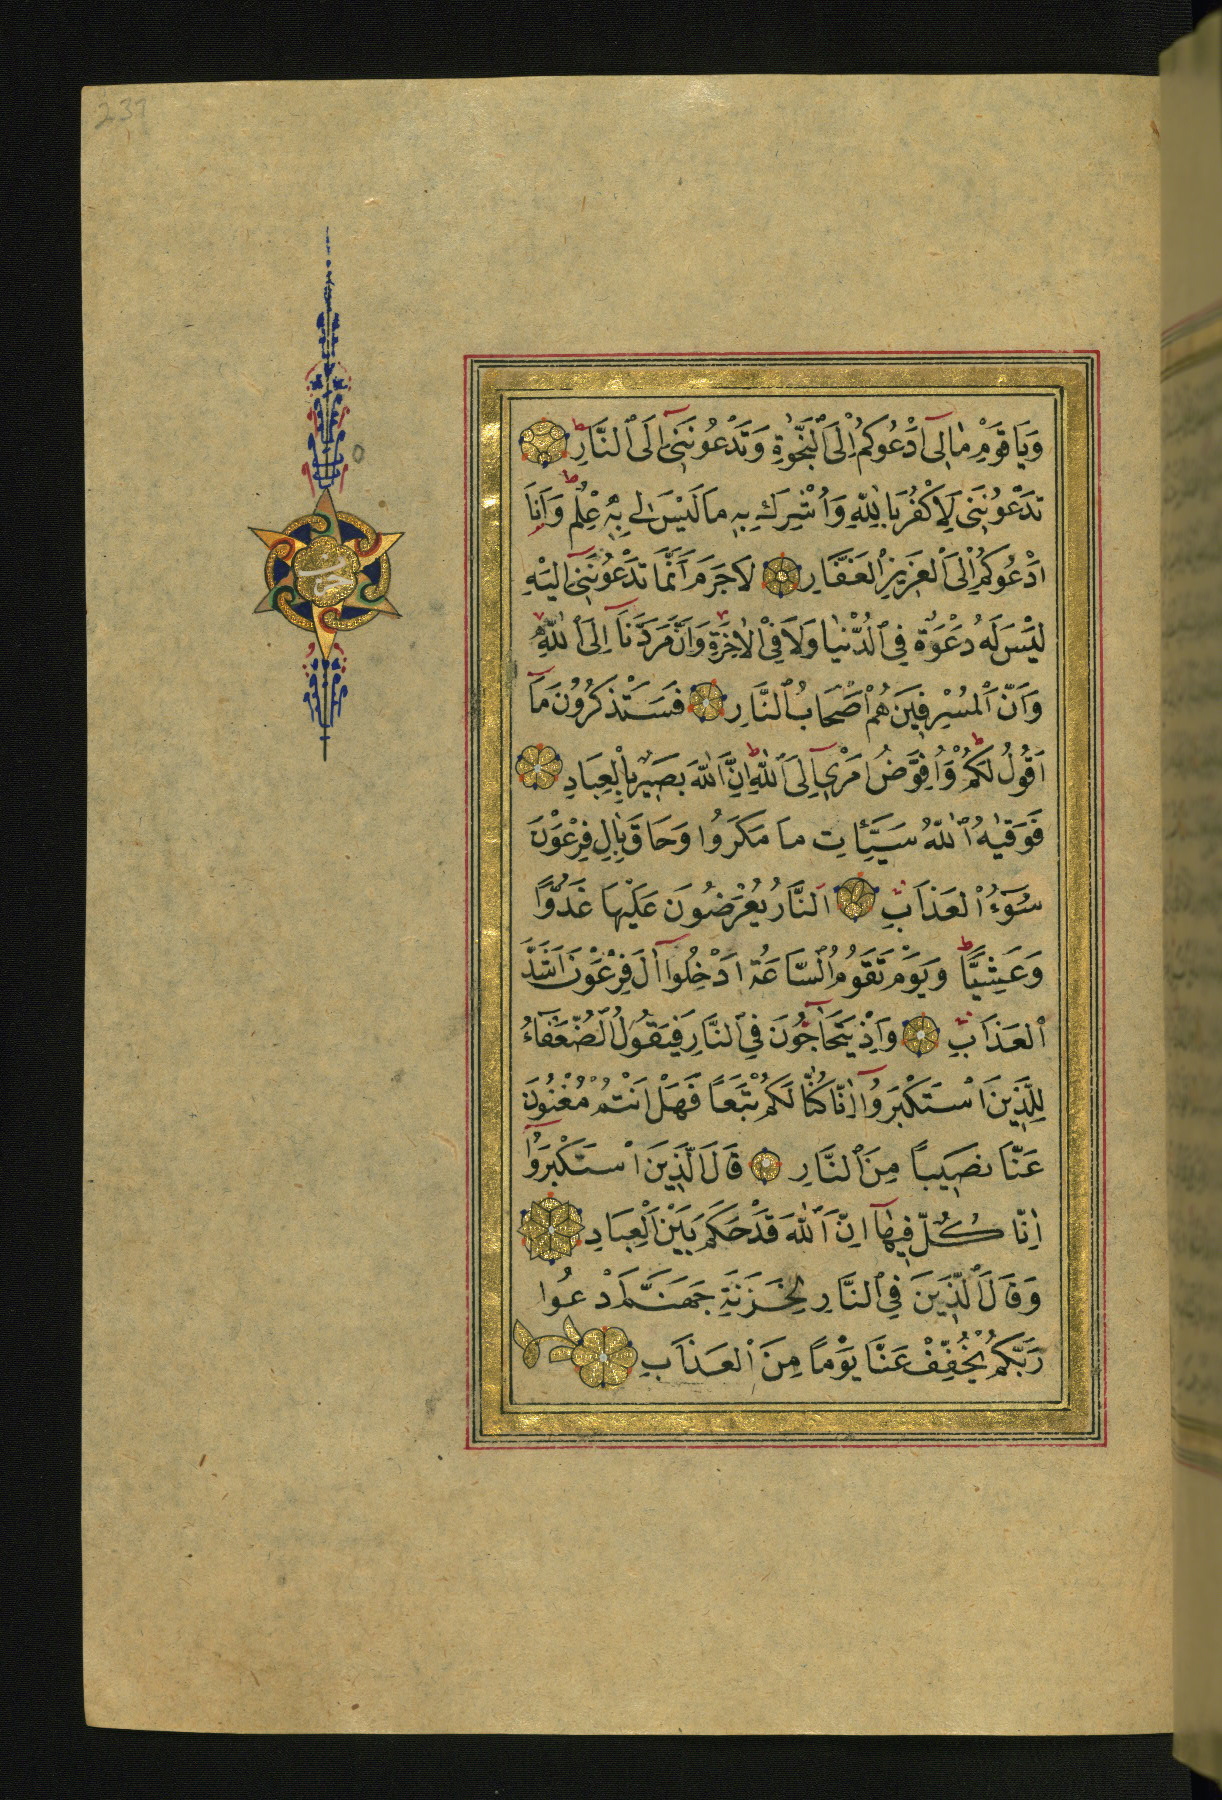 237
وَيَا قَوْمِ مَالِى اَدْعُوكُمْ اِلَى النَّجٰوةِ وَتَدْعُونَنِى اِلَى النَّارِ
تَدْعُونَنِى لِاَكْفُرَ بِاللّٰهِ وَاُشْرِكَ بِهِ مَا لَيْسَ لِى بِهِ عِلْمٌ وَاَنَا
اَدْعُوكُمْ اِلَى الْعَزِيزِ الْغَفَّارِ لَا جَرَمَ اَنَّمَا تَدْعُونَنِى اِلَيْهِ
لَيْسَ لَهُ دَعْوَةٌ فِى الدُّنْيَا وَلَا فِى الْاٰخِرَةِ وَاَنَّ مَرَدَّنَا اِلَى اللّٰهِ
وَاَنَّ الْمُسْرِفِينَ هُمْ اَصْحَابُ النَّارِ فَسَتَذْكُرُونَ مَا
اَقُولُ لَكُمْ وَاُفَوِّضُ اَمْرِى اِلَى اللّٰهِ اِنَّ اللّٰهَ بَصِيرٌ بِالْعِبَادِ
فَوَقٰيهُ اللّٰهُ سَيِّئَاتِ مَا مَكَرُوا وَحَاقَ بِاٰلِ فِرْعَوْنَ
سُوۤءُ الْعَذَابِ اَلنَّارُ يُعْرَضُونَ عَلَيْهَا غُدُوًّا
وَعَشِيًّا وَيَوْمَ تَقُومُ السَّاعَةُ اَدْخِلُوا اٰلَ فِرْعَوْنَ اَشَدَّ
الْعَذَابِ وَاِذْ يَتَحَاجُّونَ فِى النَّارِ فَيَقُولُ الضُّعَفٰاءُ
لِلَّذِينَ اسْتَكْبَرُوا اِنَّا كُنَّا لَكُمْ تَبَعًا فَهَلْ اَنْتُمْ مُغْنُونَ
عَنَّا نَصِيبًا مِنَ النَّارِ قَالَ الَّذِينَ اسْتَكْبَرُوا
اِنَّا كُلٌّ فِيهَا اِنَّ اللّٰهَ قَدْ حَكَمَ بَيْنَ الْعِبَادِ
وَقَالَ الَّذِينَ فِى النَّارِ لِخَزَنَةِ جَهَنَّمَ ادْعُوا
رَبَّكُمْ يُخَفِّفْ عَنَّا يَوْمًا مِنَ الْعَذَابِ
حزب